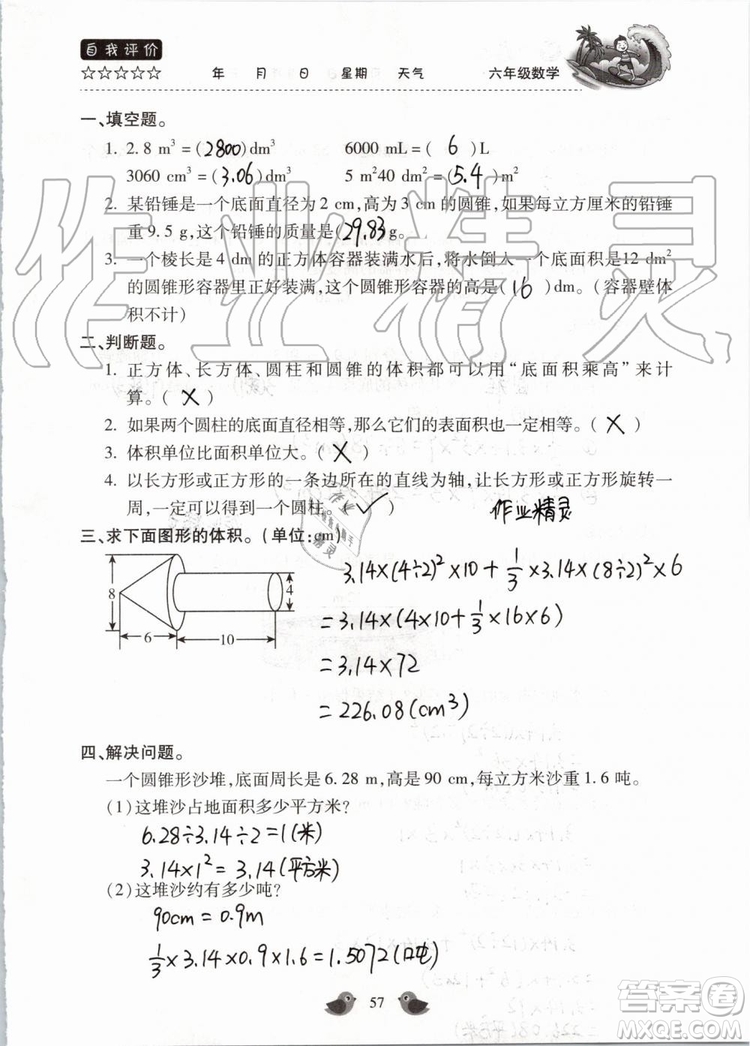 自我评价
☆☆☆☆☆ 年 月 日 星期 天气 六年级数学
一、填空题。
1. 2.8 m³=(2800)dm³ 6000 mL=( 6 )L
3060 cm³=(3.06)dm³ 5 m²40 dm²=(5.4)m²
2. 某铅锤是一个底面直径为2 cm,高为3 cm的圆锥,如果每立方厘米的铅锤
重9.5 g,这个铅锤的质量是(29.83)g。
3. 一个棱长是4 dm的正方体容器装满水后,将水倒入一个底面积是12 dm²
的圆锥形容器里正好装满,这个圆锥形容器的高是(16)dm。(容器壁体
积不计)
二、判断题。
1. 正方体、长方体、圆柱和圆锥的体积都可以用“底面积乘高”来计
算。( X )
2. 如果两个圆柱的底面直径相等,那么它们的表面积也一定相等。( X )
3. 体积单位比面积单位大。( X )
4. 以长方形或正方形的一条边所在的直线为轴,让长方形或正方形旋转一
周,一定可以得到一个圆柱。( ✓ ) 作业精灵
三、求下面图形的体积。(单位:cm)
8 4
6 10
3.14×(4÷2)²×10+1/3×3.14×(8÷2)²×6
=3.14×(4×10+1/3×16×6)
=3.14×72
=226.08(cm³)
四、解决问题。
一个圆锥形沙堆,底面周长是6.28 m,高是90 cm,每立方米沙重1.6吨。
(1)这堆沙占地面积多少平方米?
6.28÷3.14÷2=1(米)
3.14×1²=3.14(平方米)
(2)这堆沙约有多少吨?
90cm=0.9m
1/3×3.14×0.9×1.6=1.5072(吨)
57
作业精灵
答案圈
MXQE.COM